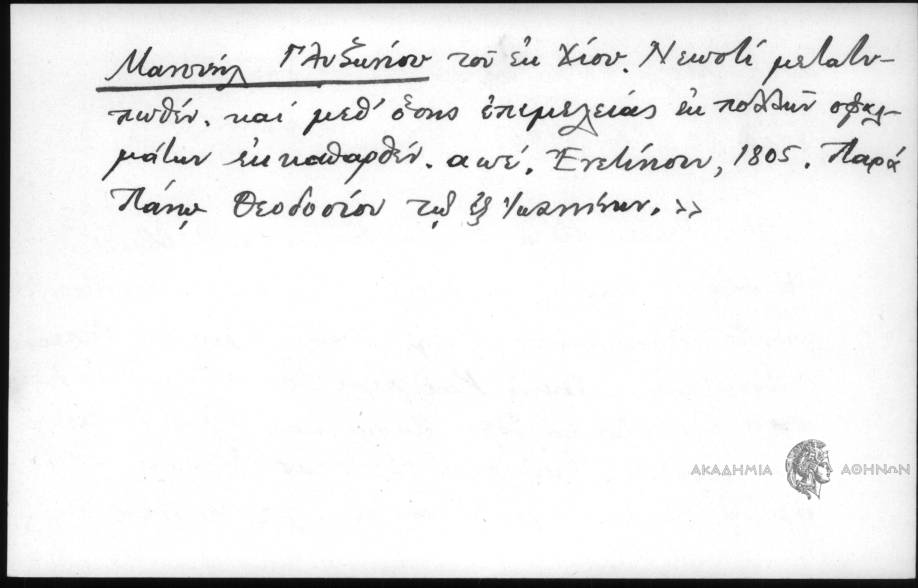 Μανουήλ Γλυζωνίου τοῦ ἐκ Χίου. Νεωστί μετατυ-
πωθέν. καί μεθ' ὅσης ἐπιμελείας ἐκ πολλῶν σφαλ-
μάτων ἐκκαθαρθέν. αωέ. Ἐνετίησιν, 1805. Παρά
Πάνῳ Θεοδοσίου τῷ ἐξ Ἰωαννίνων. »
ΑΚΑΔΗΜΙΑ ΑΘΗΝΩΝ